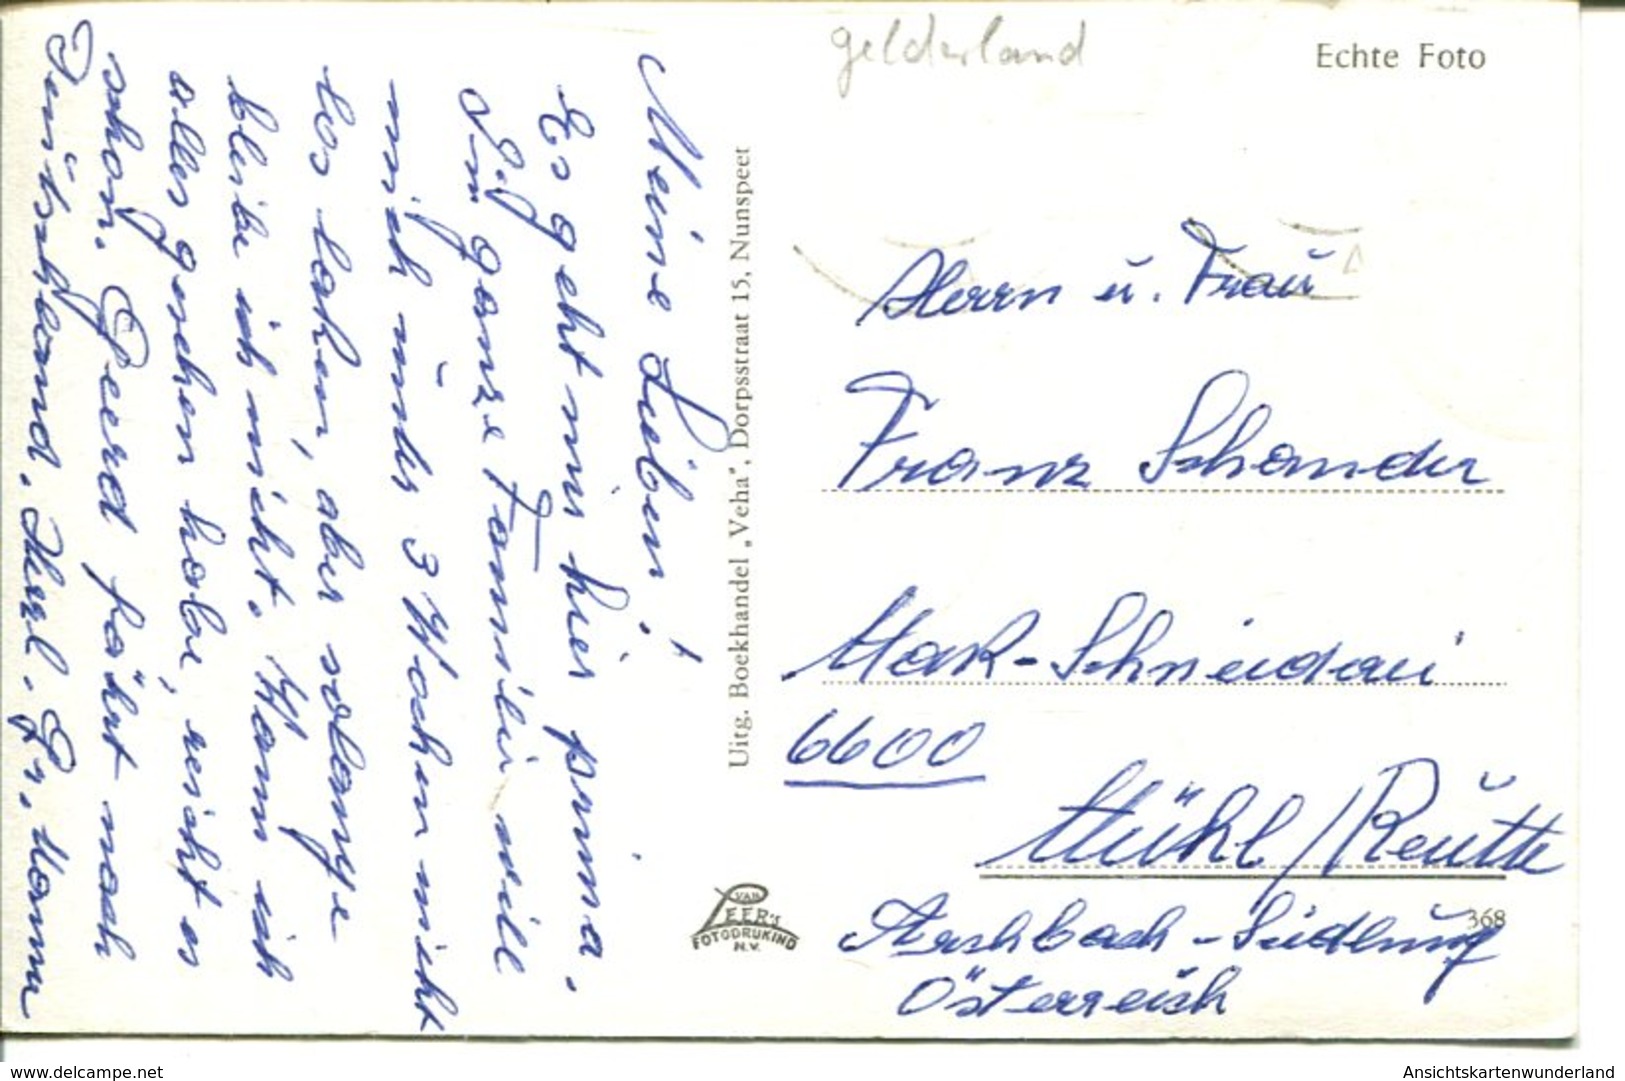 Meine Lieben!
Es geht mir hier prima.
Die ganze Familie will
mich unter 3 Wochen nicht
los laßen, aber solange
bleibe ich nicht. Wann ich
alles gesehen habe, reicht es
schon. Geerd fährt nach
Deutschland. Herzl. Gr.
gelderland
Echte Foto
Uitg. Boekhandel „Veha”, Dorpsstraat 15, Nunspeet
Herrn u. Frau
Franz Schander
Mark-Schneidari
6600
Mühl/Reutte
Archbach-Siedlung
Österreich
368
VAN
LEER's
FOTODRUKIND
N.V.
www.delcampe.net
Ansichtskartenwunderland